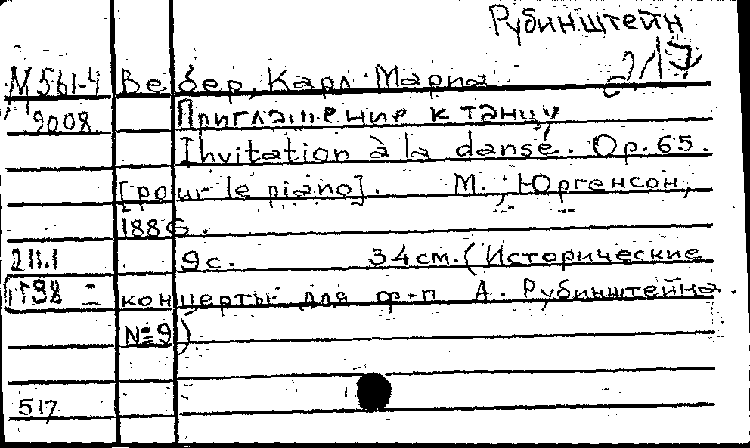 Рубинштейн
М561-4 Вебер, Карл Мариа 217
9008 Приглашение к танцу
Invitation à la danse. Op. 65.
[pour le piano]. М., Юргенсон,
1886.
9с. 34см. (Исторические
концерты для ф-п А. Рубинштейна.
№9)
517